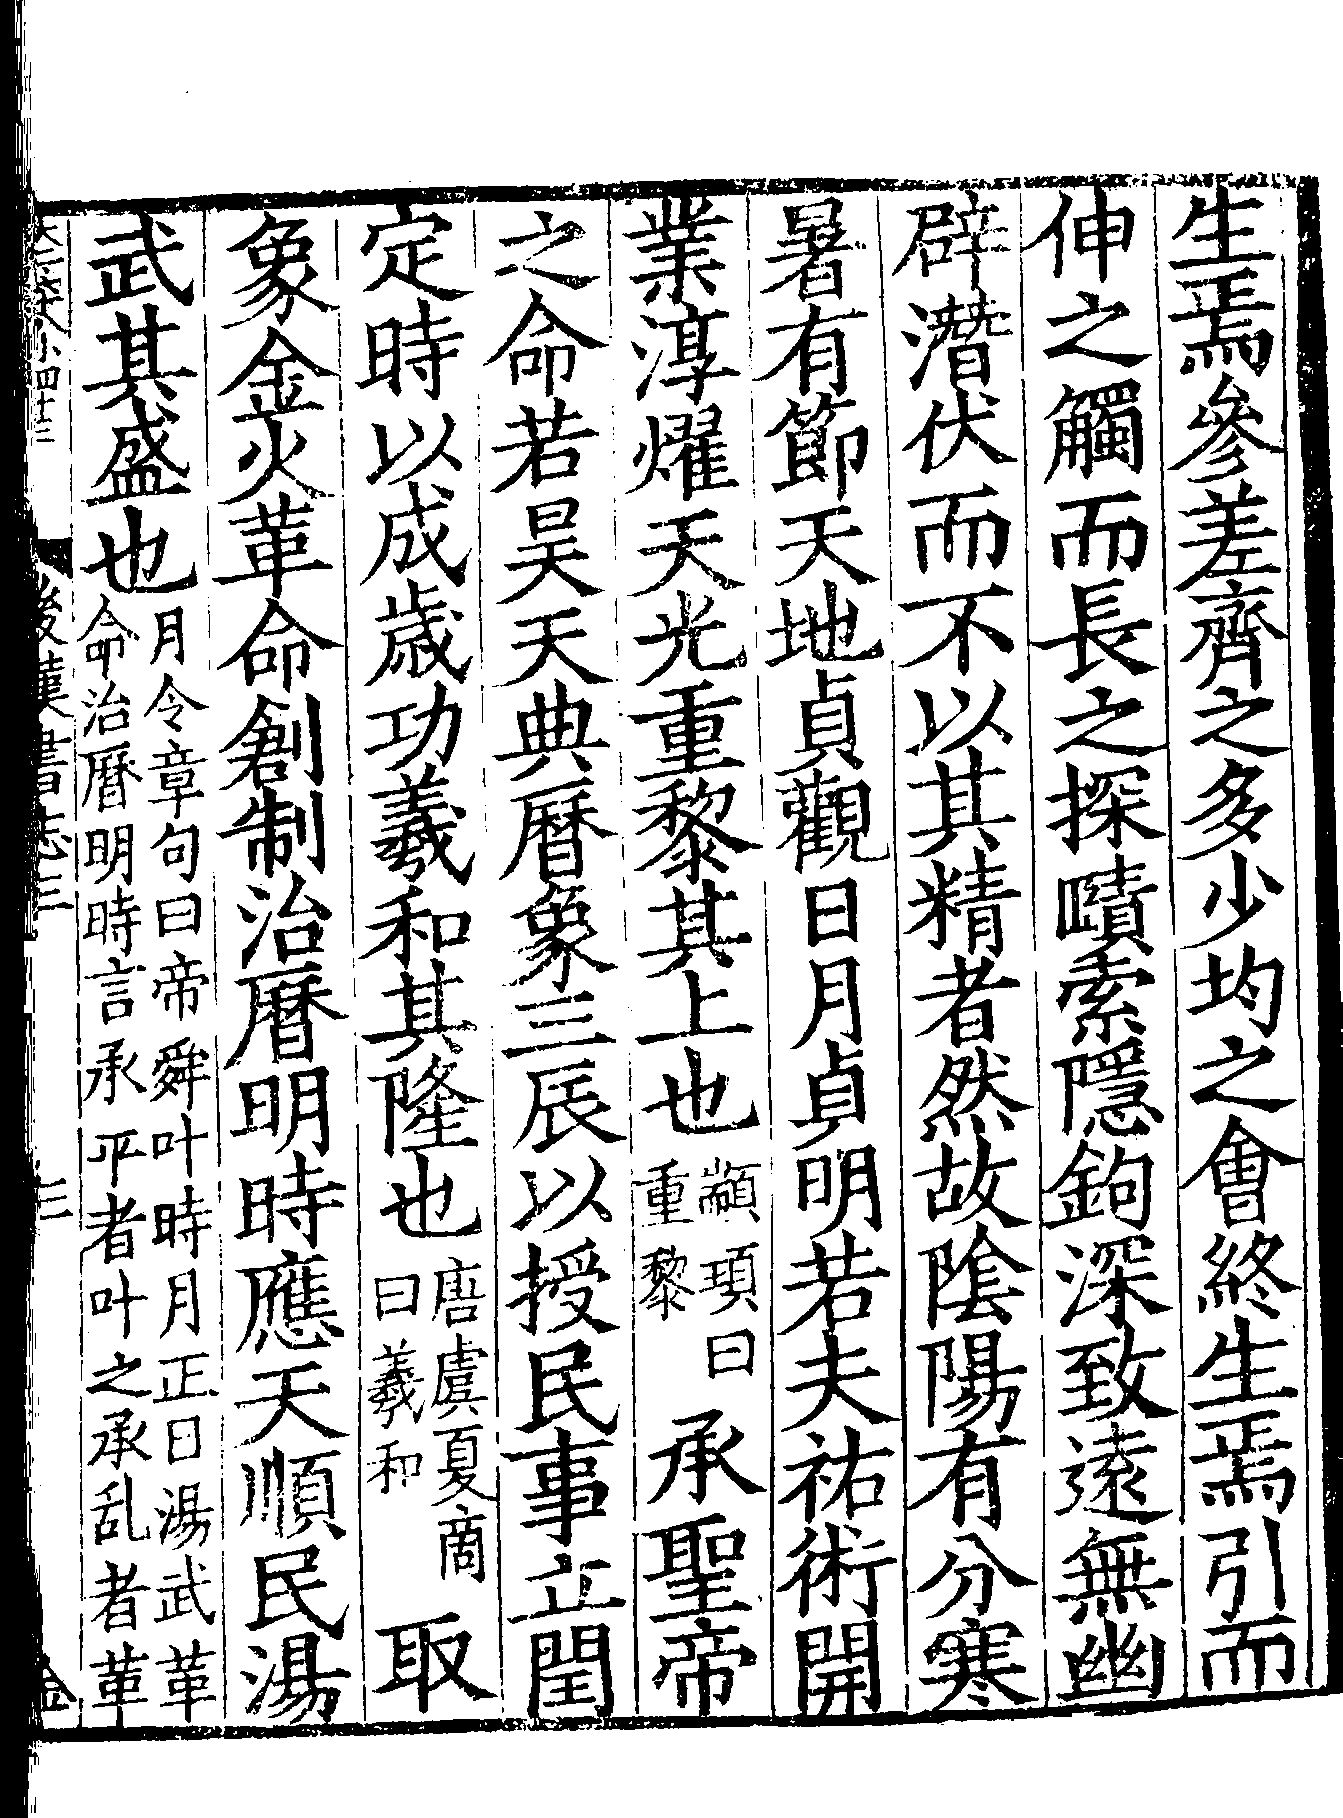 生焉參差齊之多少均之會終生焉引而
伸之觸而長之探賾索隱鉤深致遠無幽
辟潛伏而不以其精者然故陰陽有分寒
暑有節天地貞觀日月貞明若夫祐術開
業淳燿天光重黎其上也顓頊曰重黎承聖帝
之命若昊天典曆象三辰以授民事立閏
定時以成歲功羲和其隆也唐虞夏商曰羲和取
象金火革命創制治曆明時應天順民湯
武其盛也月令章句曰帝舜叶時月正日湯武革
命治曆明時言承平者叶之承乱者革
小四十三
後漢書志三
三
金